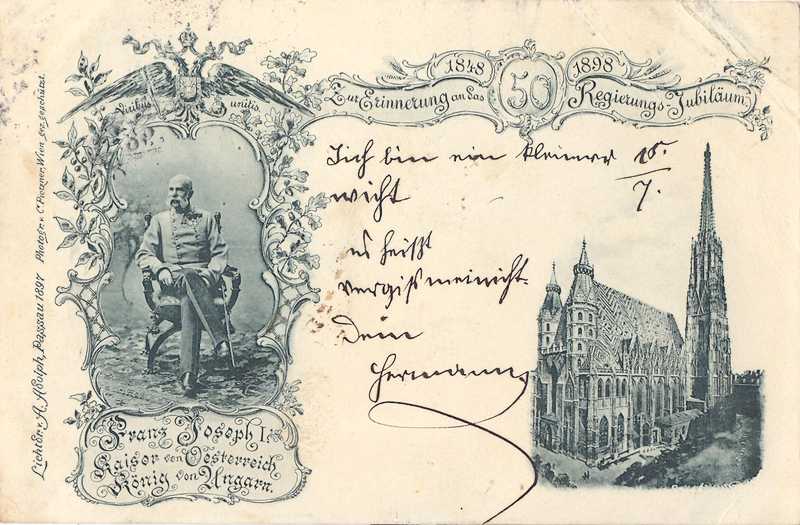 Viribus unitis
1848 50 1898
Zur Erinnerung an das Regierungs-Jubiläum
Ich bin ein kleiner
wicht
es heißt
vergißmeinicht.
Dein
Hermann
15./7.
Franz Joseph I.
Kaiser von Oesterreich
König von Ungarn.
Lichtdr. v. A. Adolph, Passau 1897 Photogr. v. C. Pietzner, Wien, ges. geschützt.